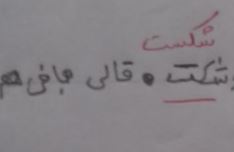 شکست
شکت • قالی بافی هم